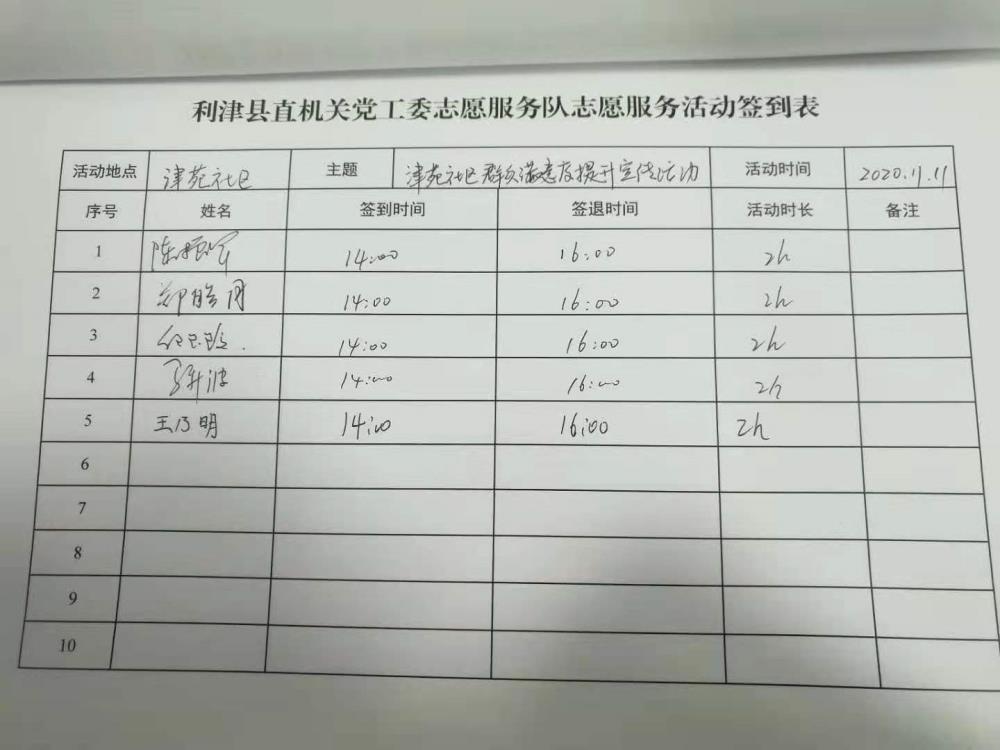 利津县直机关党工委志愿服务队志愿服务活动签到表
活动地点 津苑社区 主题 津苑社区群众满意度提升宣传活动 活动时间 2020.11.11
序号 姓名 签到时间 签退时间 活动时长 备注
1 14:00 16:00 2h
2 14:00 16:00 2h
3 14:00 16:00 2h
4 14:00 16:00 2h
5 王乃明 14:00 16:00 2h
6
7
8
9
10